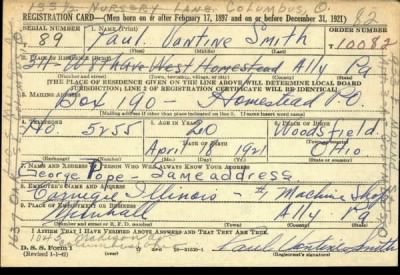 1337 Nursery Lane, Columbus, O.
82
REGISTRATION CARD—(Men born on or after February 17, 1897 and on or before December 31, 1921)
SERIAL NUMBER
1. NAME (Print)
ORDER NUMBER
T 89
Paul Vantine Smith
T10082
(First) (Middle) (Last)
2. PLACE OF RESIDENCE (Print)
West Homestead Ally Pa
(Number and street) (Town, township, village, or city) (County) (State)
[THE PLACE OF RESIDENCE GIVEN ON THE LINE ABOVE WILL DETERMINE LOCAL BOARD
JURISDICTION; LINE 2 OF REGISTRATION CERTIFICATE WILL BE IDENTICAL]
3. MAILING ADDRESS
Box 190 - Homestead P.O.
[Mailing address if other than place indicated on line 2. If same insert word same]
4. TELEPHONE
5. AGE IN YEARS
6. PLACE OF BIRTH
Ho. 5255
20
Woodsfield
DATE OF BIRTH
(Town or county)
April 18 1921
Ohio
(Exchange) (Number)
(Mo.) (Day) (Yr.)
(State or country)
7. NAME AND ADDRESS OF PERSON WHO WILL ALWAYS KNOW YOUR ADDRESS
George Pope - Same address
8. EMPLOYER'S NAME AND ADDRESS
Carnegie Illinois - Machine Shop
9. PLACE OF EMPLOYMENT OR BUSINESS
Munhall Ally Pa
(Number and street or R. F. D. number) (Town) (County) (State)
I AFFIRM THAT I HAVE VERIFIED ABOVE ANSWERS AND THAT THEY ARE TRUE.
D. S. S. Form 1
(Revised 1-1-42)
(over)
16—21630-1
Paul Vantine Smith
(Registrant's signature)